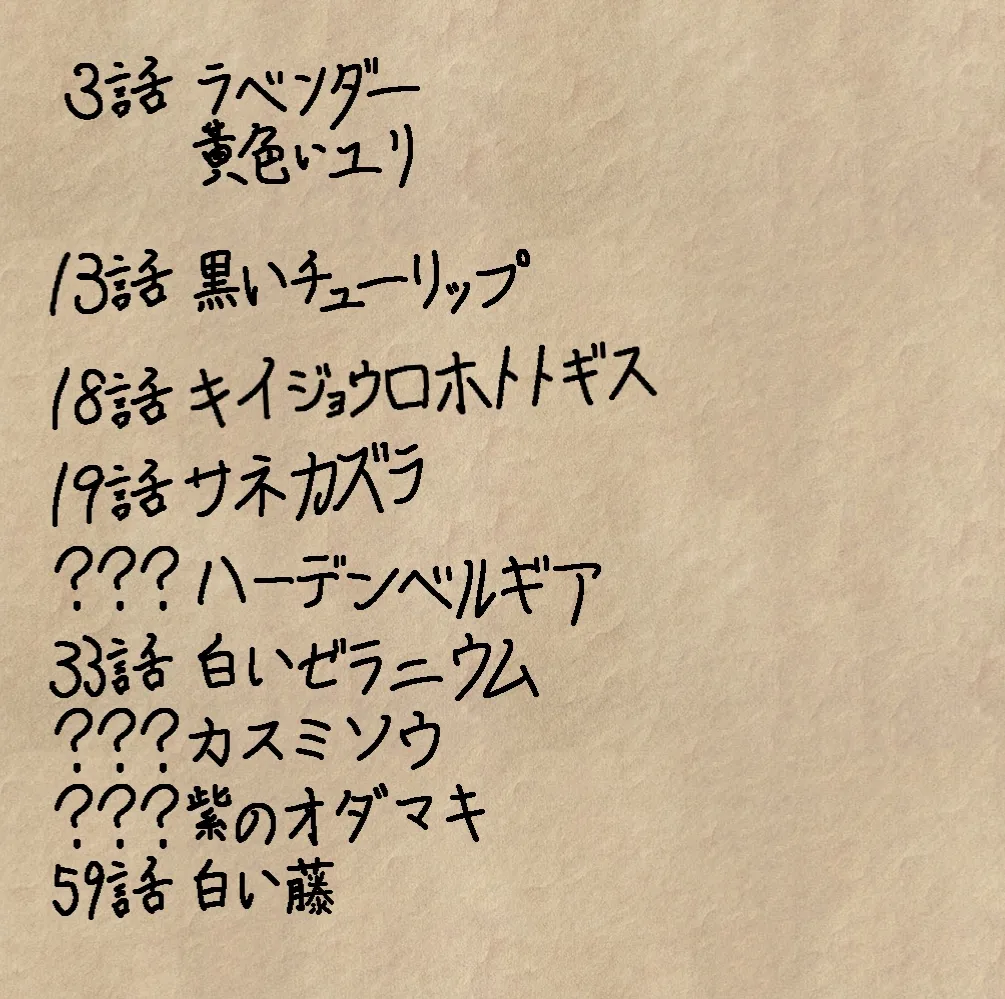 3話 ラベンダー
黄色いユリ
13話 黒いチューリップ
18話 キイジョウロホトトギス
19話 サネカズラ
??? ハーデンベルギア
33話 白いゼラニウム
??? カスミソウ
??? 紫のオダマキ
59話 白い藤